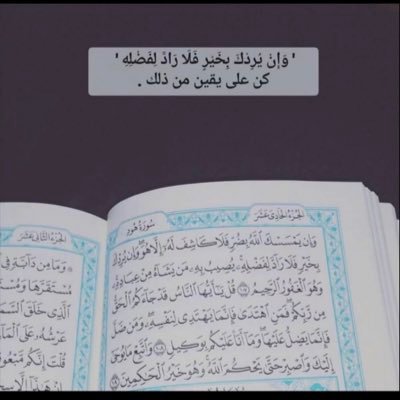 ' وَإِنْ يُرِدْكَ بِخَيْرٍ فَلَا رَادَّ لِفَضْلِهِ '
كن على يقين من ذلك .
الجزء الحادي عشر
سورة هود
الجزء الثاني عشر
وَإِن يَمْسَسْكَ ٱللَّهُ بِضُرٍّ فَلَا كَاشِفَ لَهُۥٓ إِلَّا هُوَ وَإِن يُرِدْكَ
بِخَيْرٍ فَلَا رَآدَّ لِفَضْلِهِۦ يُصِيبُ بِهِۦ مَن يَشَآءُ مِنْ عِبَادِهِۦ
وَهُوَ ٱلْغَفُورُ ٱلرَّحِيمُ ۝ قُلْ يَٰٓأَيُّهَا ٱلنَّاسُ قَدْ جَآءَكُمُ ٱلْحَقُّ
مِن رَّبِّكُمْ فَمَنِ ٱهْتَدَىٰ فَإِنَّمَا يَهْتَدِى لِنَفْسِهِۦ وَمَن ضَلَّ
فَإِنَّمَا يَضِلُّ عَلَيْهَا وَمَآ أَنَا۠ عَلَيْكُم بِوَكِيلٍ ۝ وَٱتَّبِعْ مَا يُوحَىٰٓ
إِلَيْكَ وَٱصْبِرْ حَتَّىٰ يَحْكُمَ ٱللَّهُ وَهُوَ خَيْرُ ٱلْحَٰكِمِينَ
وَمَا مِن دَآبَّةٍ فِى
مُسْتَقَرَّهَا وَمُسْ
ٱلَّذِى خَلَقَ ٱلسَّمَ
عَرْشُهُۥ عَلَى ٱلْمَآ
قُلْتَ إِنَّكُم مَّبْعُو
إِنْ هَٰذَآ إِلَّا سِحْ